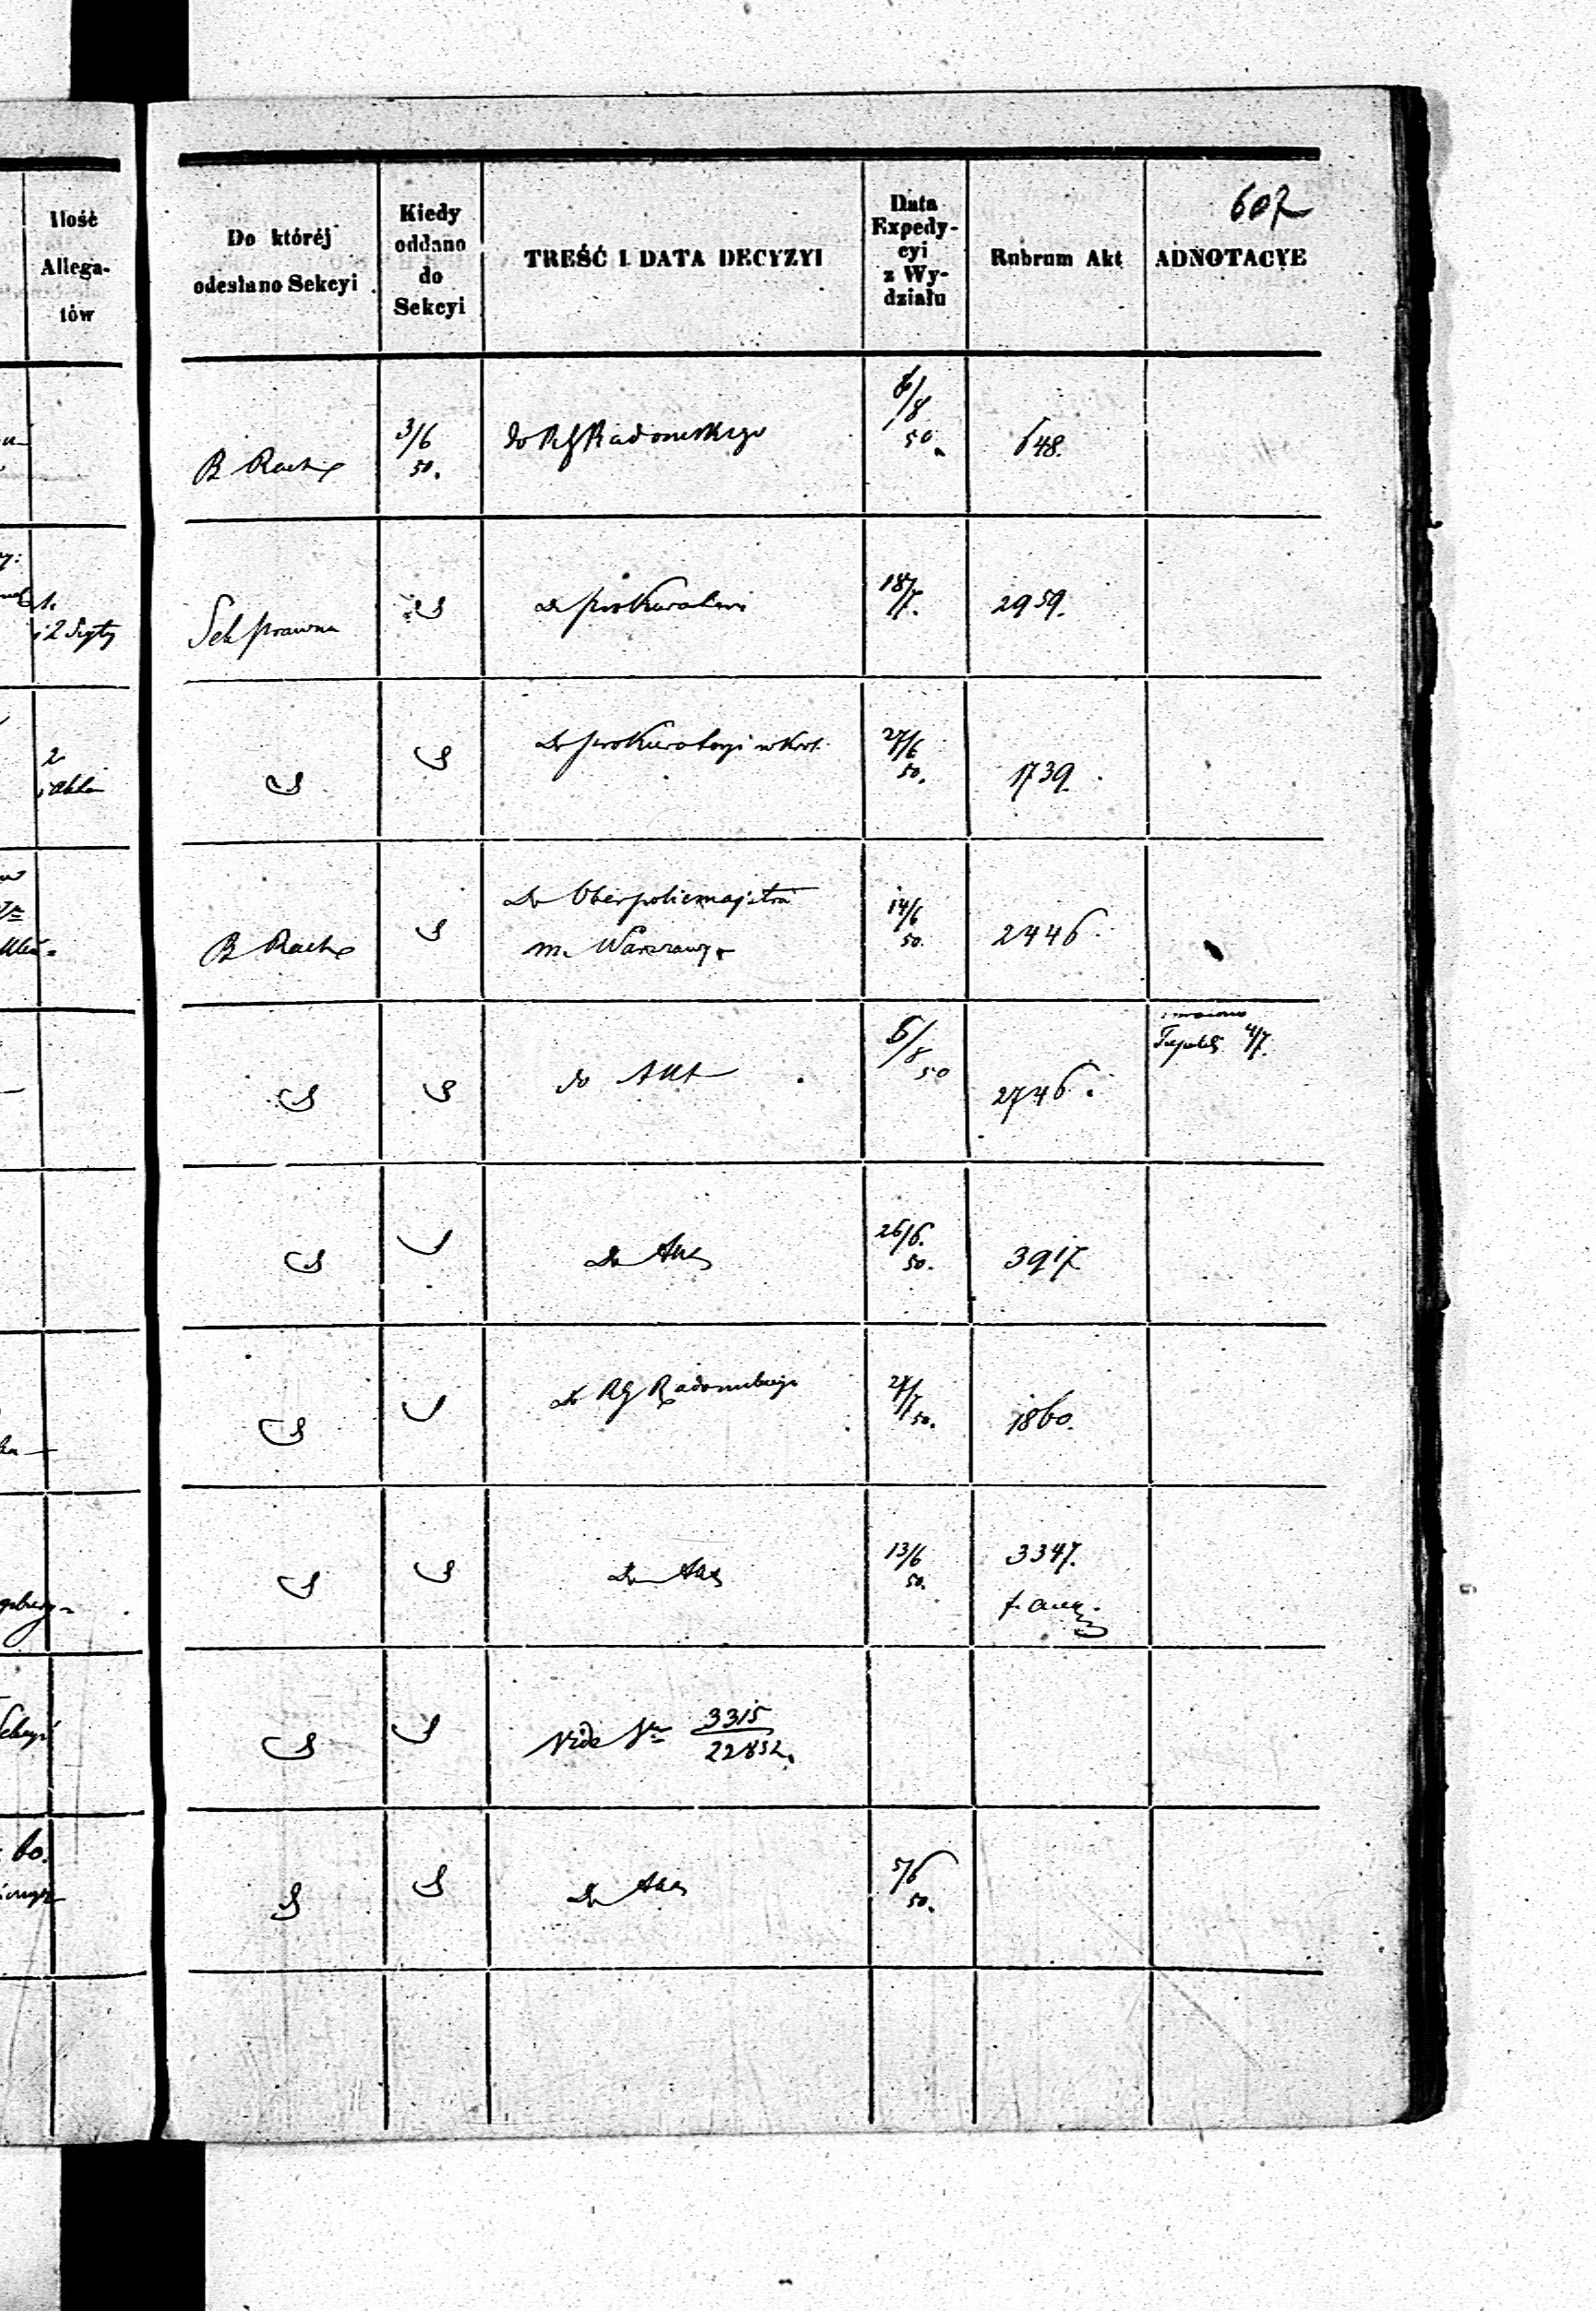 607
Ilość
Allega-
tów
Do któréj
odesłano Sekcyi
Kiedy
oddano
do
Sekcyi
TREŚĆ I DATA DECYZYI
Data
Expedy-
cyi
z Wy-
działu
Rubrum Akt
ADNOTACYE
B Rach
3/6
50.
do RG Radomskiego
6/8
50
648.
1.
Sek prawna
do prokuratorii
18/7.
2959.
2
do prokuratoryi w Król.
27/6
50.
1739.
B Rach
Do Oberpolicmajstra
m. Warszawy
14/6
50.
2446
do Akt
6/8
50
2746.
4/7.
Do Akt
26/6.
50.
3917
do RG Radomskiego
27/7
50.
1860.
Do Akt
13/6
50.
3347.
Vide Nr 3315
22852.
Do Akt
5/6
50.